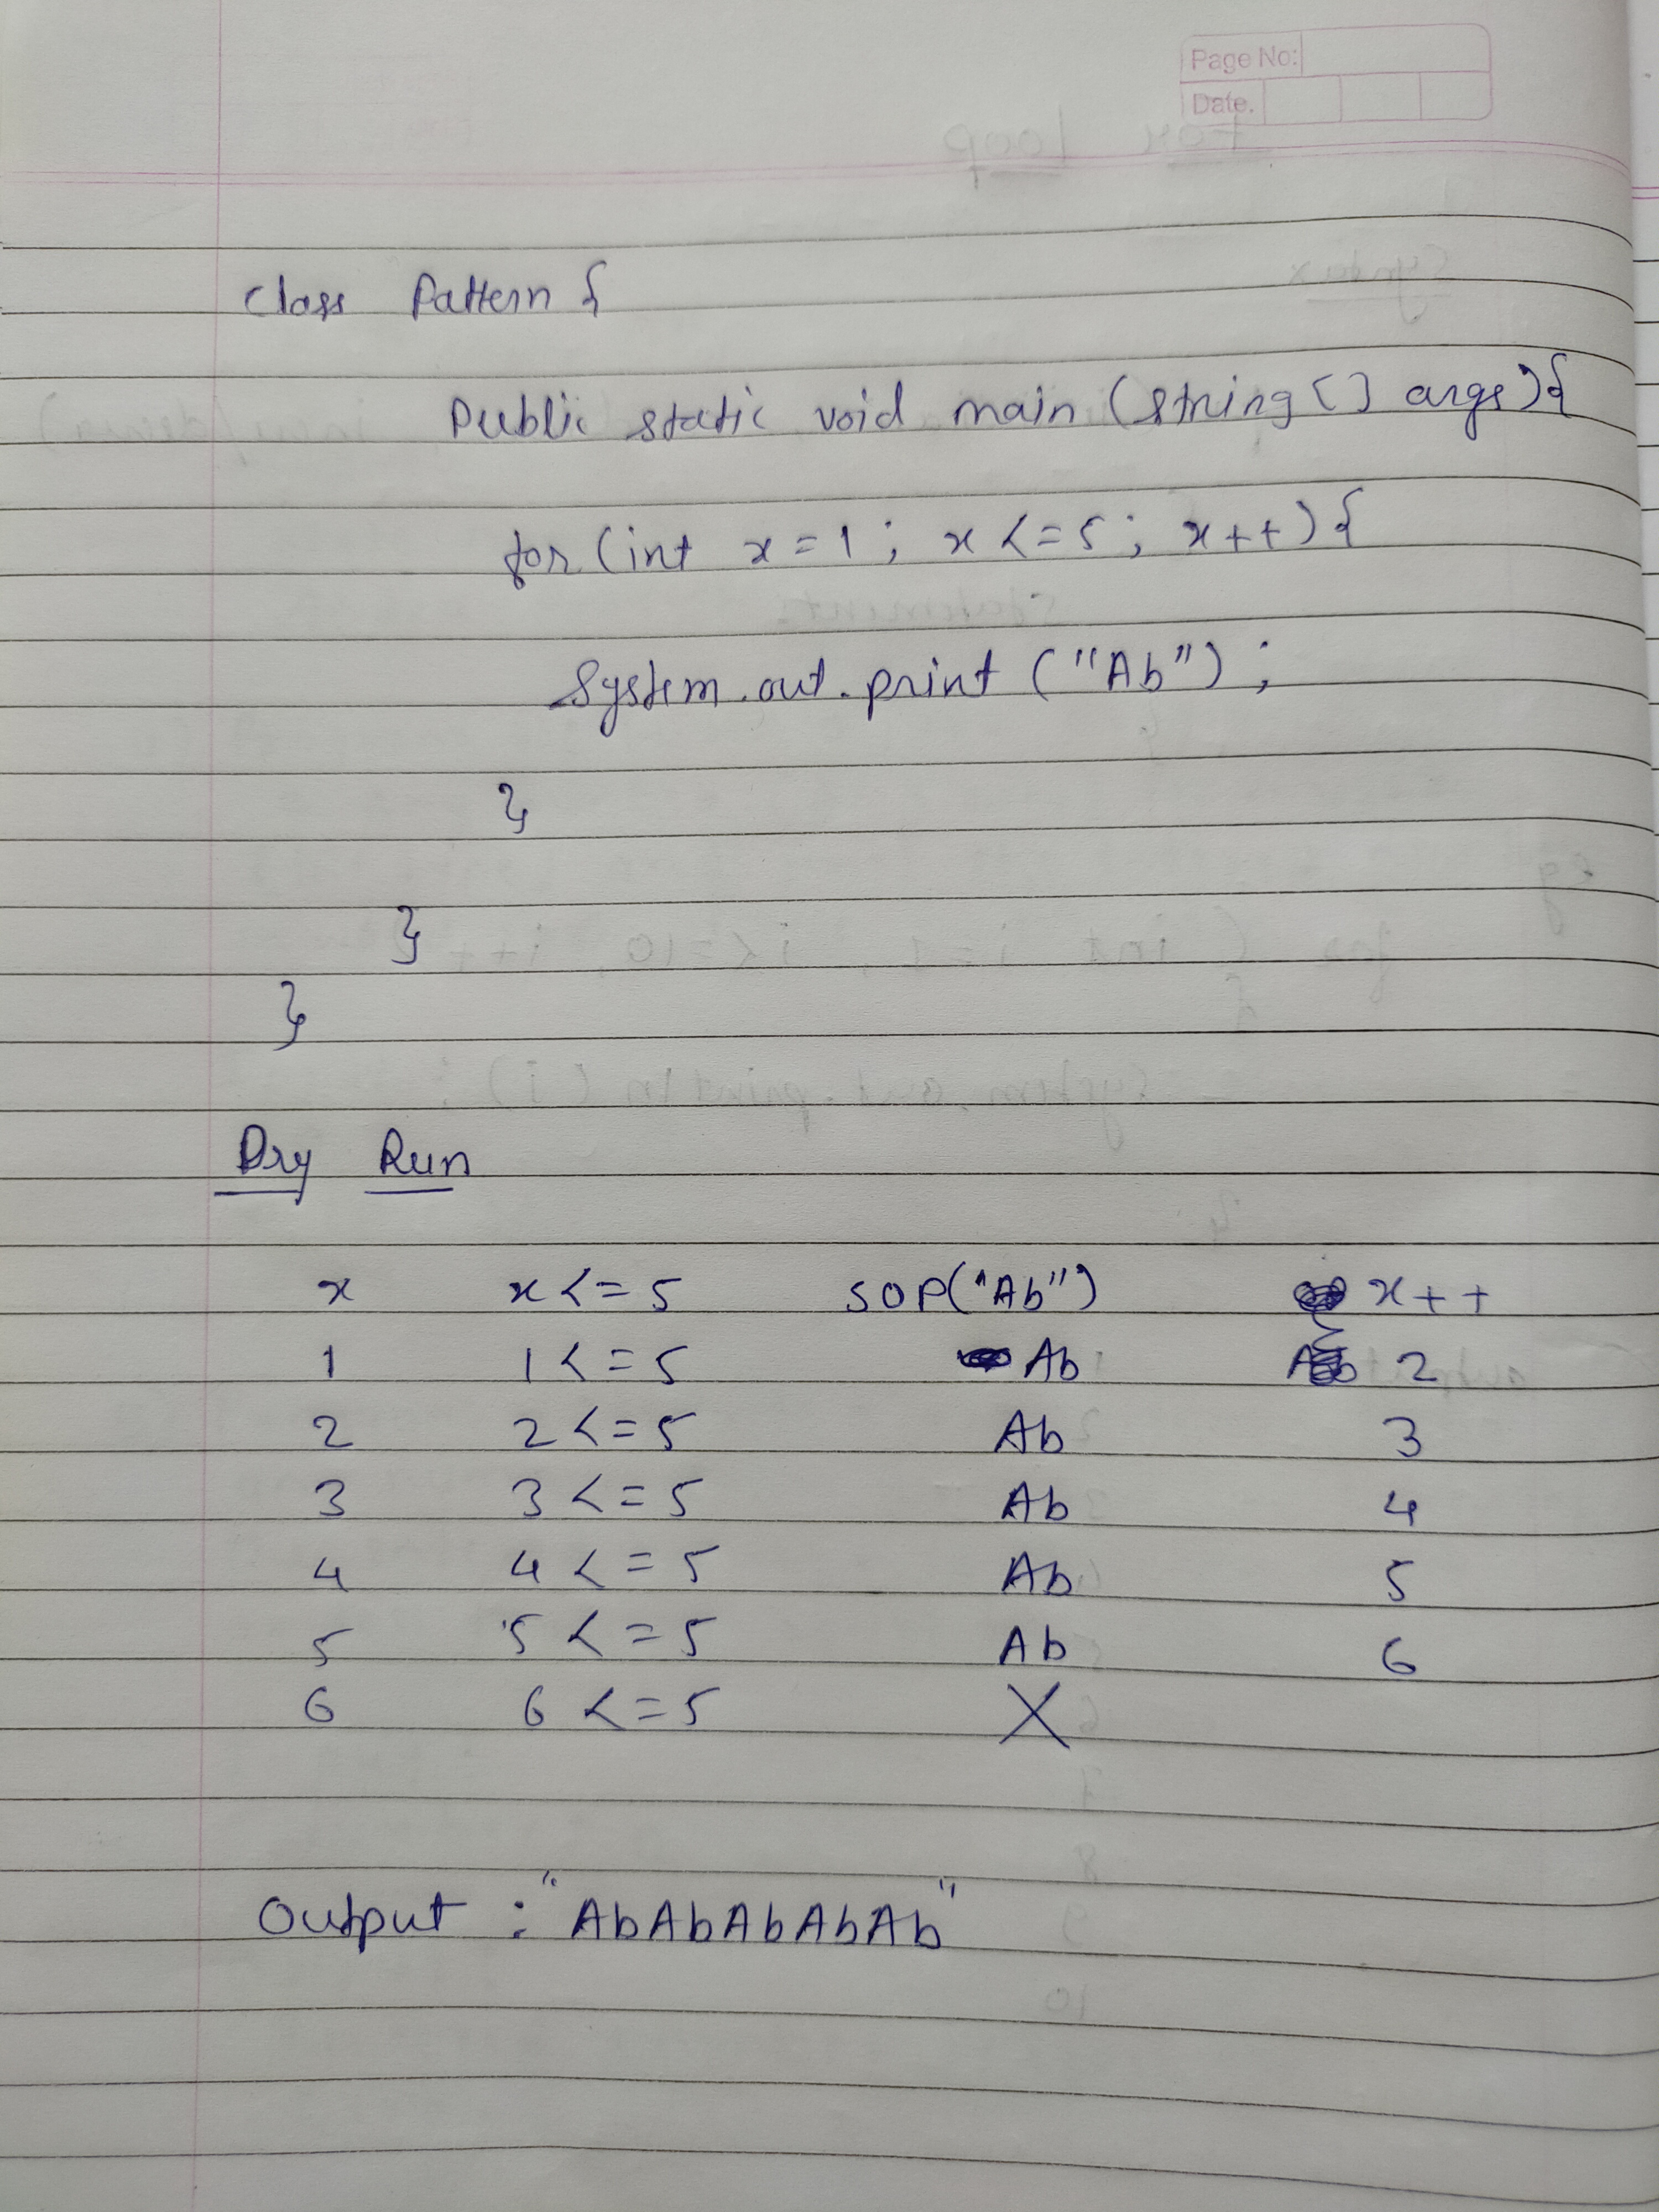 Page No:
Date.
class Pattern {
Public static void main (string [] args) {
for (int x = 1 ; x <= 5 ; x++) {
System.out.print ("Ab") ;
}
}
}
Dry Run
x x <= 5 SOP("Ab") x++
1 1 <= 5 Ab 2
2 2 <= 5 Ab 3
3 3 <= 5 Ab 4
4 4 <= 5 Ab 5
5 5 <= 5 Ab 6
6 6 <= 5 X
Output : "AbAbAbAbAb"